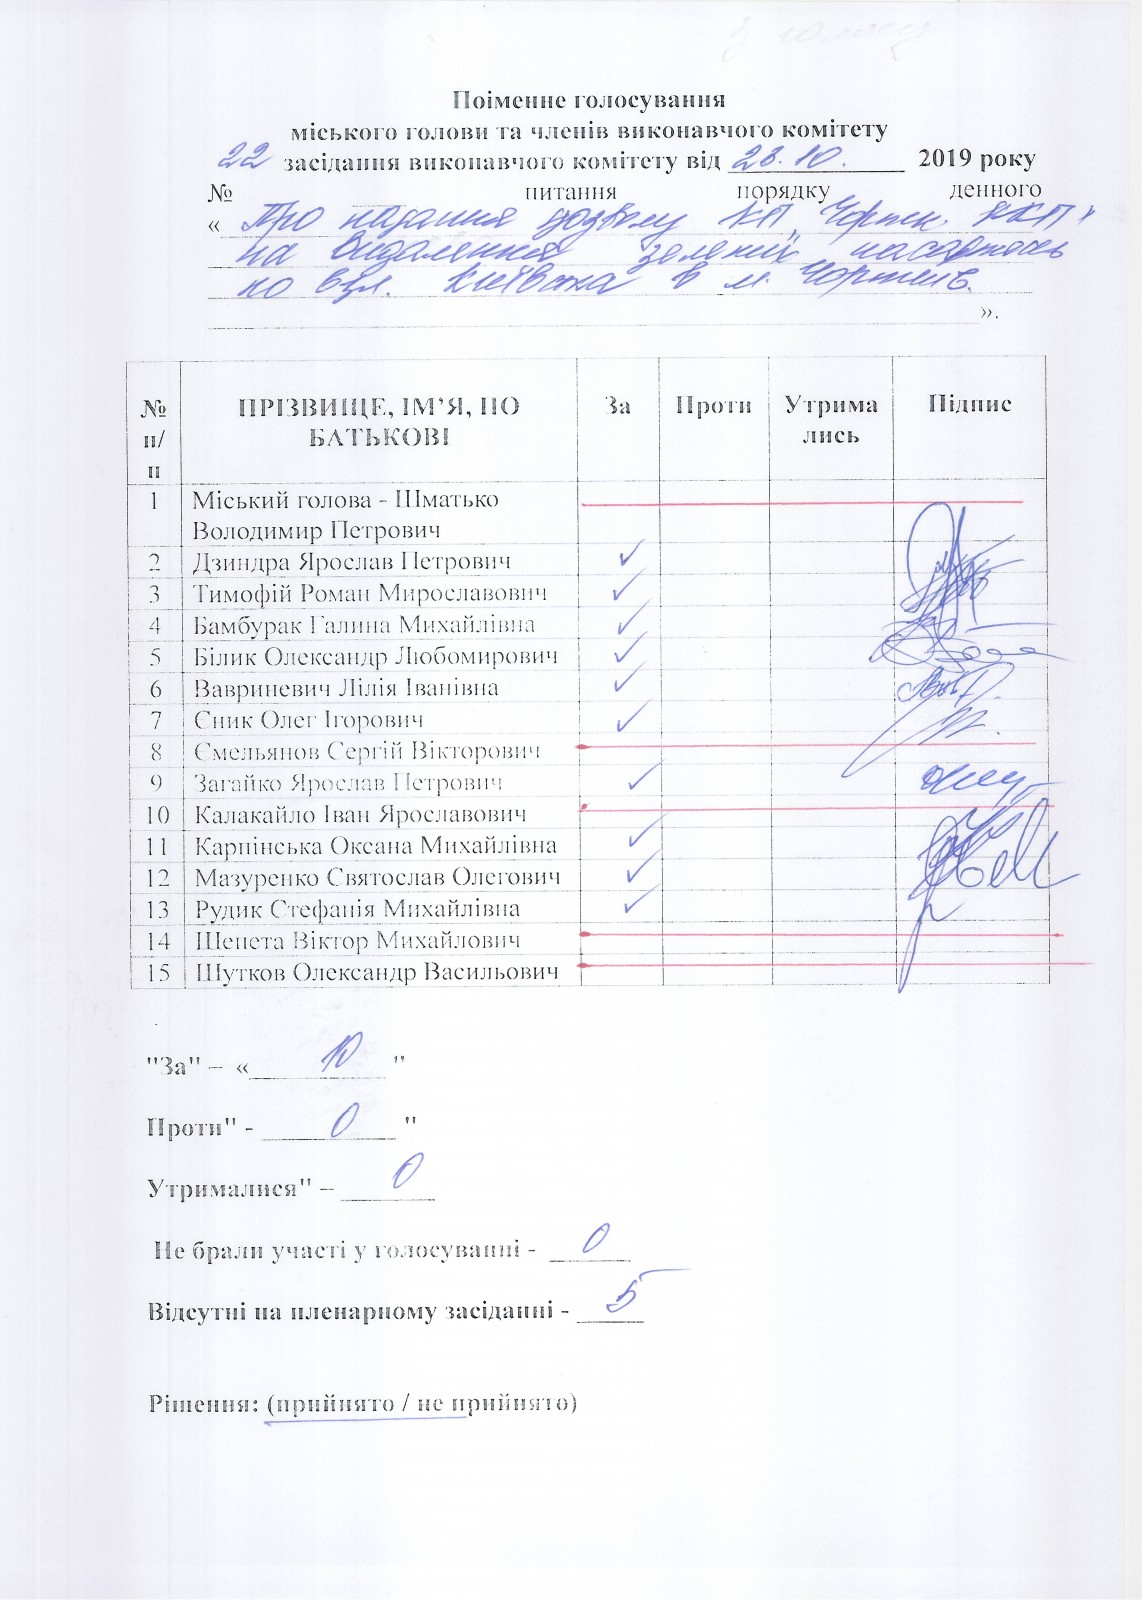 Поіменне голосування
міського голови та членів виконавчого комітету
22 засідання виконавчого комітету від 23.10. 2019 року
№ питання порядку денного
« Про надання дозволу КП „Чортк. ККП"
на видалення зелених насаджень
по вул. Київська в м. Чортків.
».
№ п/п ПРІЗВИЩЕ, ІМ’Я, ПО БАТЬКОВІ За Проти Утримались Підпис
1 Міський голова - Шматько
Володимир Петрович
2 Дзиндра Ярослав Петрович ✓
3 Тимофій Роман Мирославович ✓
4 Бамбурак Галина Михайлівна ✓
5 Білик Олександр Любомирович ✓
6 Вавриневич Лілія Іванівна ✓
7 Єник Олег Ігорович ✓
8 Ємельянов Сергій Вікторович
9 Загайко Ярослав Петрович ✓
10 Калакайло Іван Ярославович
11 Карпінська Оксана Михайлівна ✓
12 Мазуренко Святослав Олегович ✓
13 Рудик Стефанія Михайлівна ✓
14 Шепета Віктор Михайлович
15 Шутков Олександр Васильович
"За" – « 10 "
Проти" - 0 "
Утрималися" – 0
Не брали участі у голосуванні - 0
Відсутні на пленарному засіданні - 5
Рішення: (прийнято / не прийнято)